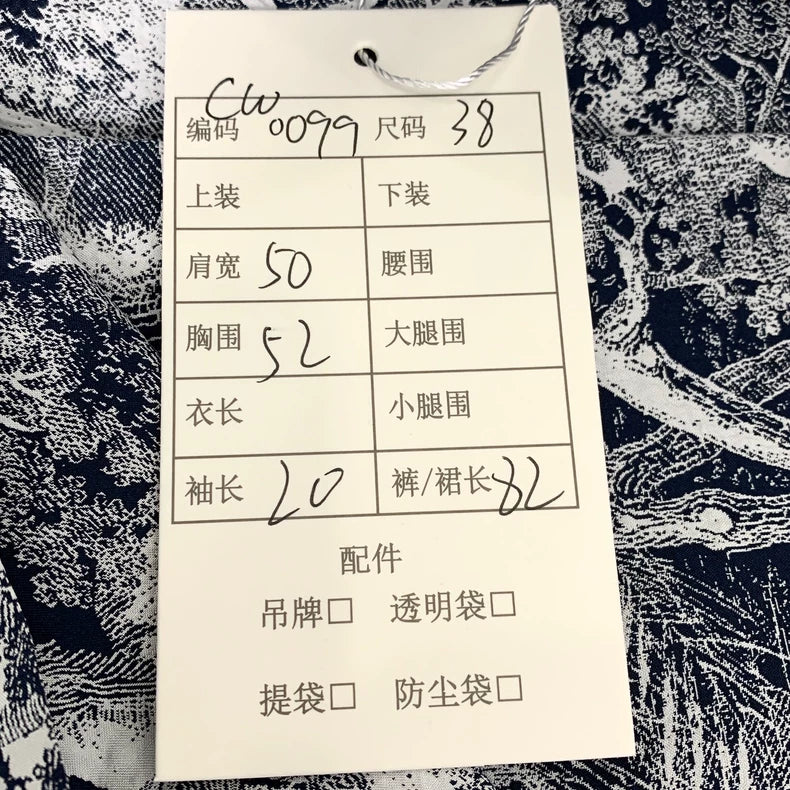 编码 CW0099 尺码 38
上装 下装
肩宽 50 腰围
胸围 52 大腿围
衣长 小腿围
袖长 20 裤/裙长 82
配件
吊牌□ 透明袋□
提袋□ 防尘袋□